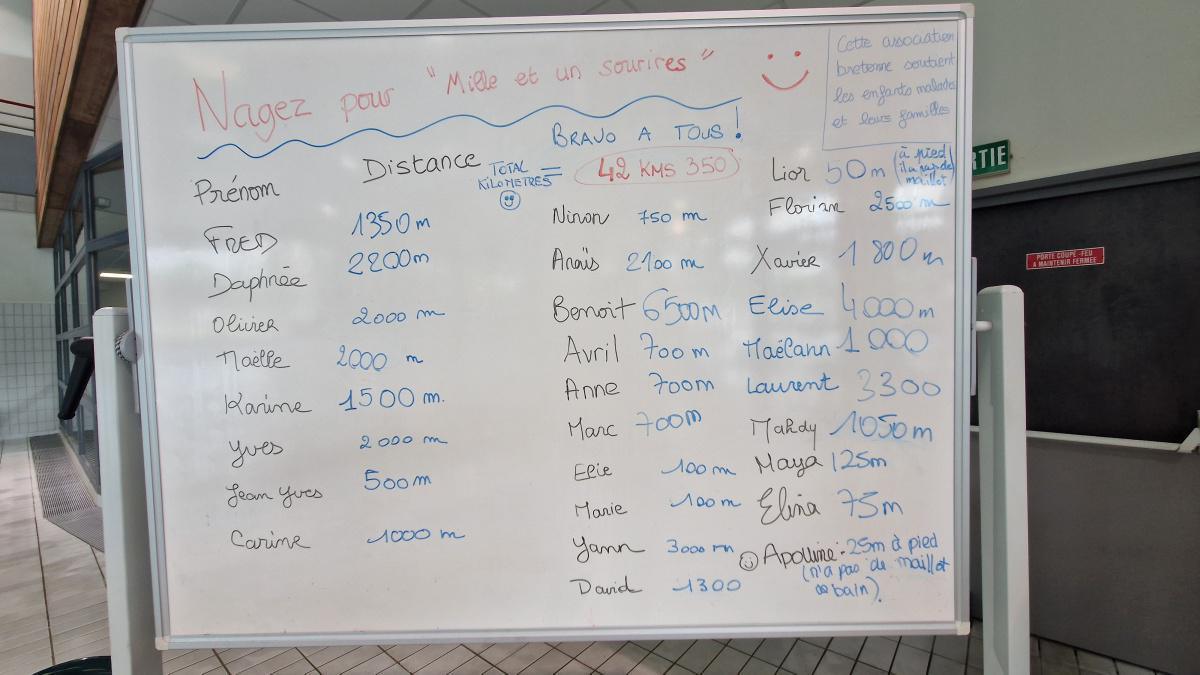 Nagez pour "Mille et un sourires"
Cette association
bretonne soutient
les enfants malades
et leurs familles
BRAVO A TOUS !
Prénom Distance
TOTAL
KILOMETRES = 42 KMS 350
FRED 1350m
Daphnée 2200m
Olivier 2000 m
Maëlle 2000 m
Karine 1500 m.
Yves 2000 m
Jean Yves 500m
Carine 1000 m
Ninon 750 m
Anaïs 2100 m
Benoit 6500m
Avril 700m
Anne 700m
Marc 700m
Elie 100m
Marie 100m
Yann 3000m
David 1300
Lior 50m (à pied
il a pas de
maillot)
Florian 2500 m
Xavier 1 800m
Elise 4000m
Maëlann 1000
Laurent 3300
Mahdy 1050m
Maya 125m
Elina 75m
Apolline : 25m à pied
(n'a pas de maillot
de bain).
RTIE
PORTE COUPE-FEU
A MAINTENIR FERMEE